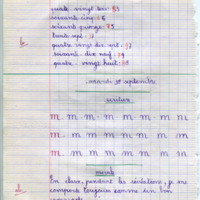 quatre vingt trois 83
soixante cinq 65
soixante quinze 75
quatre vingt dix sept 97
soixante dix neuf 79
quatre vingt huit 88
mardi septembre
écriture
m m m m m m m
m m m m m m m
m m m m m m m
morale
En classe, pendant les récréations, je me
comporte toujours comme un bon